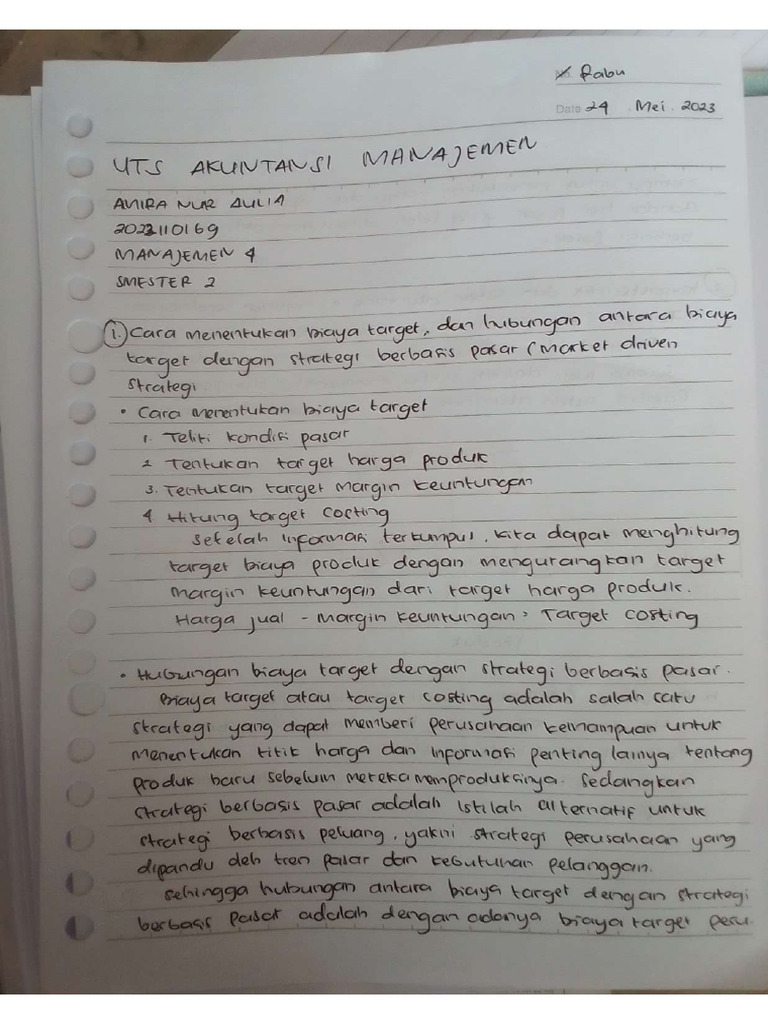 No Rabu
Date 24 . Mei . 2023
UTS AKUNTANSI MANAJEMEN
ANIRA NUR AULIA
2022110169
MANAJEMEN 4
SMESTER 2
1. Cara menentukan biaya target, dan hubungan antara biaya
target dengan strategi berbasis pasar (Market driven
strategi
• Cara menentukan biaya target
1. Teliti kondisi pasar
2 Tentukan target harga produk
3. Tentukan target Margin keuntungan
4 Hitung target costing
setelah informasi terkumpul, kita dapat menghitung
target biaya produk dengan mengurangkan target
margin keuntungan dari target harga produk.
Harga jual - Margin keuntungan = Target costing
• Hubungan biaya target dengan strategi berbasis pasar.
Biaya target atau target costing adalah salah satu
strategi yang dapat memberi perusahaan kemampuan untuk
menentukan titik harga dan informasi penting lainya tentang
produk baru sebelum mereka memproduksinya. Sedangkan
strategi berbasis pasar adalah istilah alternatif untuk
strategi berbasis peluang, yakni strategi perusahaan yang
dipandu oleh tren pasar dan kebutuhan pelanggan.
sehingga hubungan antara biaya target dengan strategi
berbasis pasar adalah dengan adanya biaya target peru.